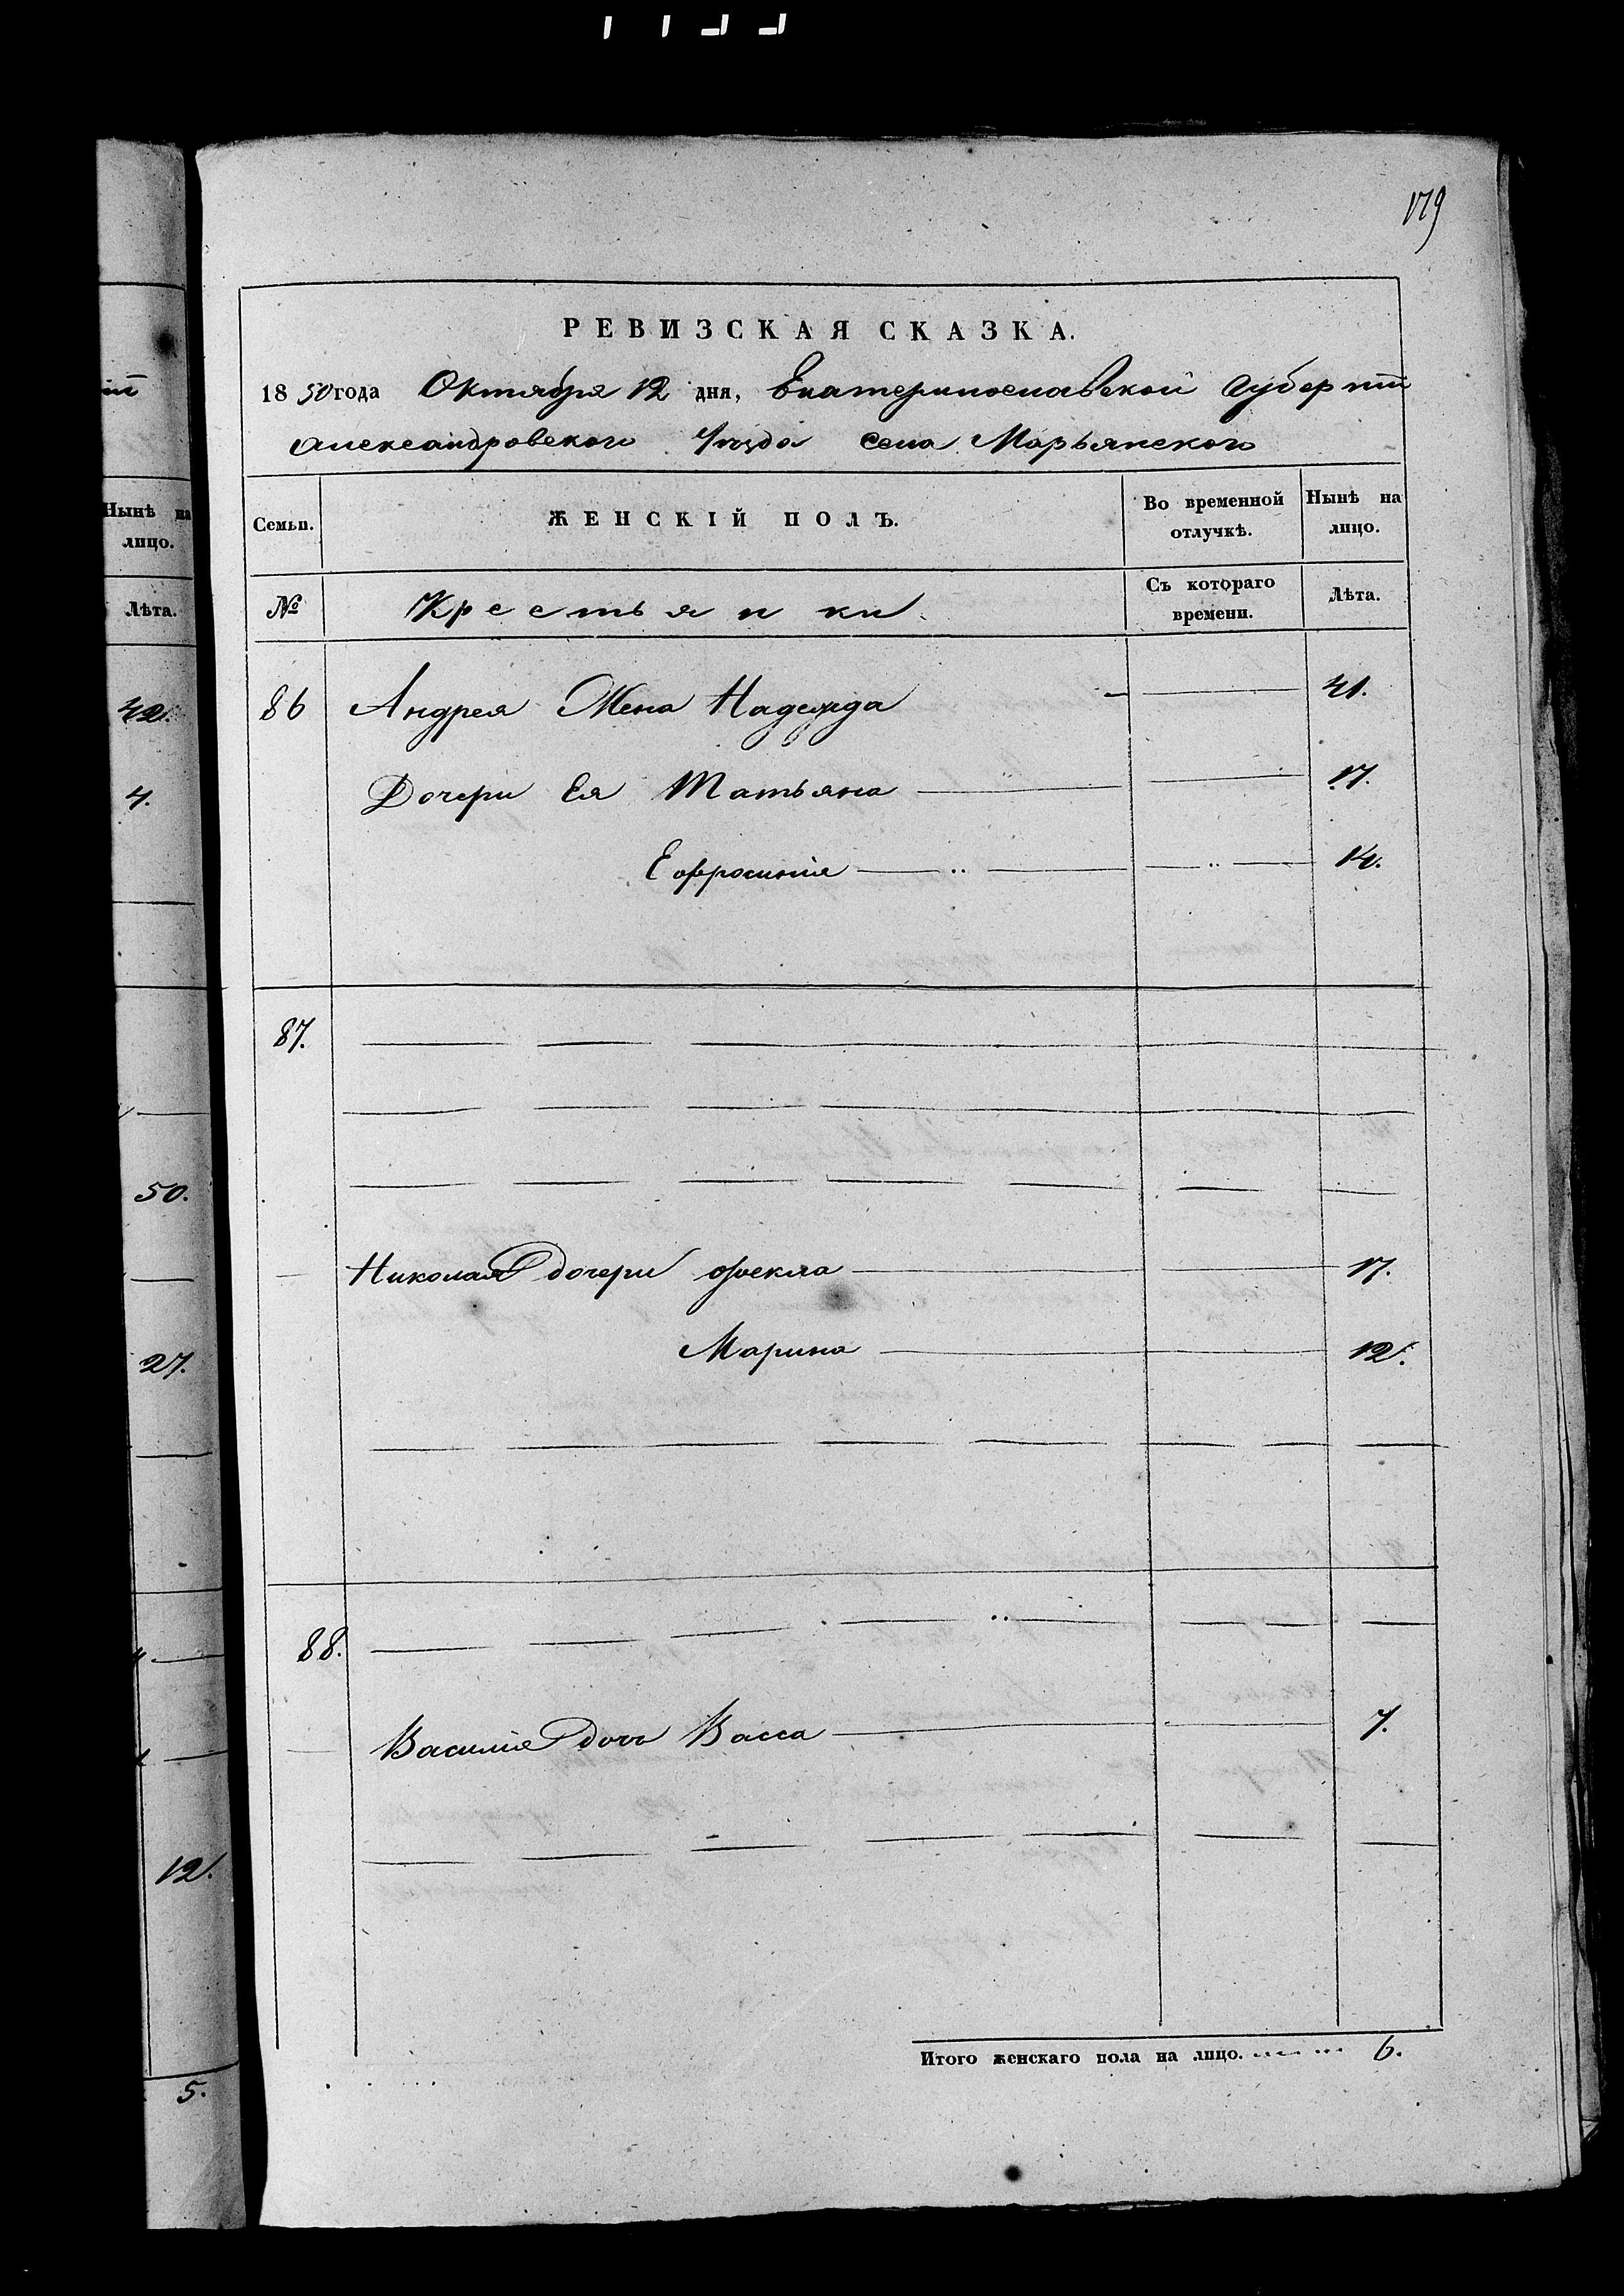 179
РЕВИЗСКАЯ СКАЗКА.
1850 года Октября 12 дня, Екатеринославской Губерніи
Александровского Уѣзда Села Марьянского
Семьи. ЖЕНСКІЙ ПОЛЪ. Во временной отлучкѣ. Нынѣ на лицо.
№ Крестьянки. Съ котораго времени. Лѣта.
86 Андрея Жена Надежда 41.
Дочери Ея Татьяна 17.
Ефросинія 14.
87.
Николая дочери Фекла 17.
Марина 12.
88.
Василія дочь Васса 7.
Итого женскаго пола на лицо. 6.
Нынѣ на
лицо.
Лѣта.
42.
4.
50.
27.
12.
5.